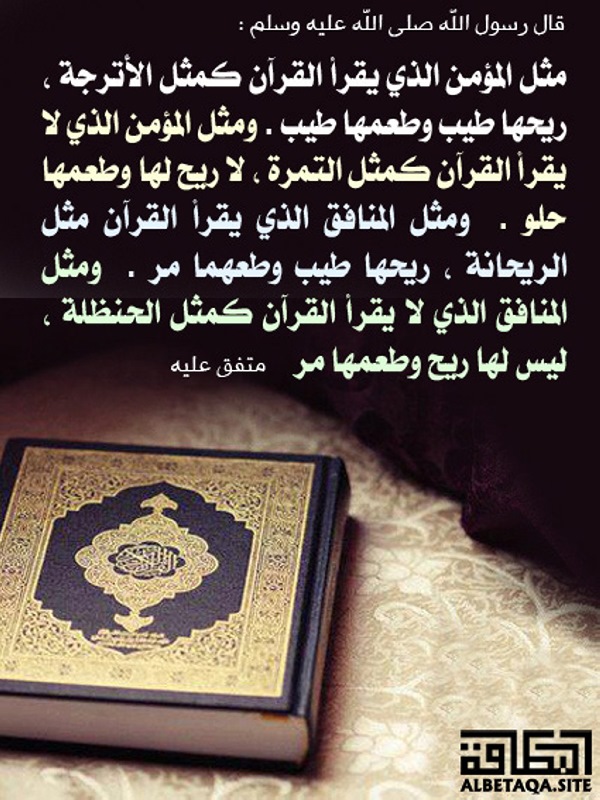 قال رسول الله صلى الله عليه وسلم :
مثل المؤمن الذي يقرأ القرآن كمثل الأترجة ،
ريحها طيب وطعمها طيب . ومثل المؤمن الذي لا
يقرأ القرآن كمثل التمرة ، لا ريح لها وطعمها
حلو . ومثل المنافق الذي يقرأ القرآن مثل
الريحانة ، ريحها طيب وطعهما مر . ومثل
المنافق الذي لا يقرأ القرآن كمثل الحنظلة ،
ليس لها ريح وطعمها مر متفق عليه
البطاقة
ALBETAQA.SITE